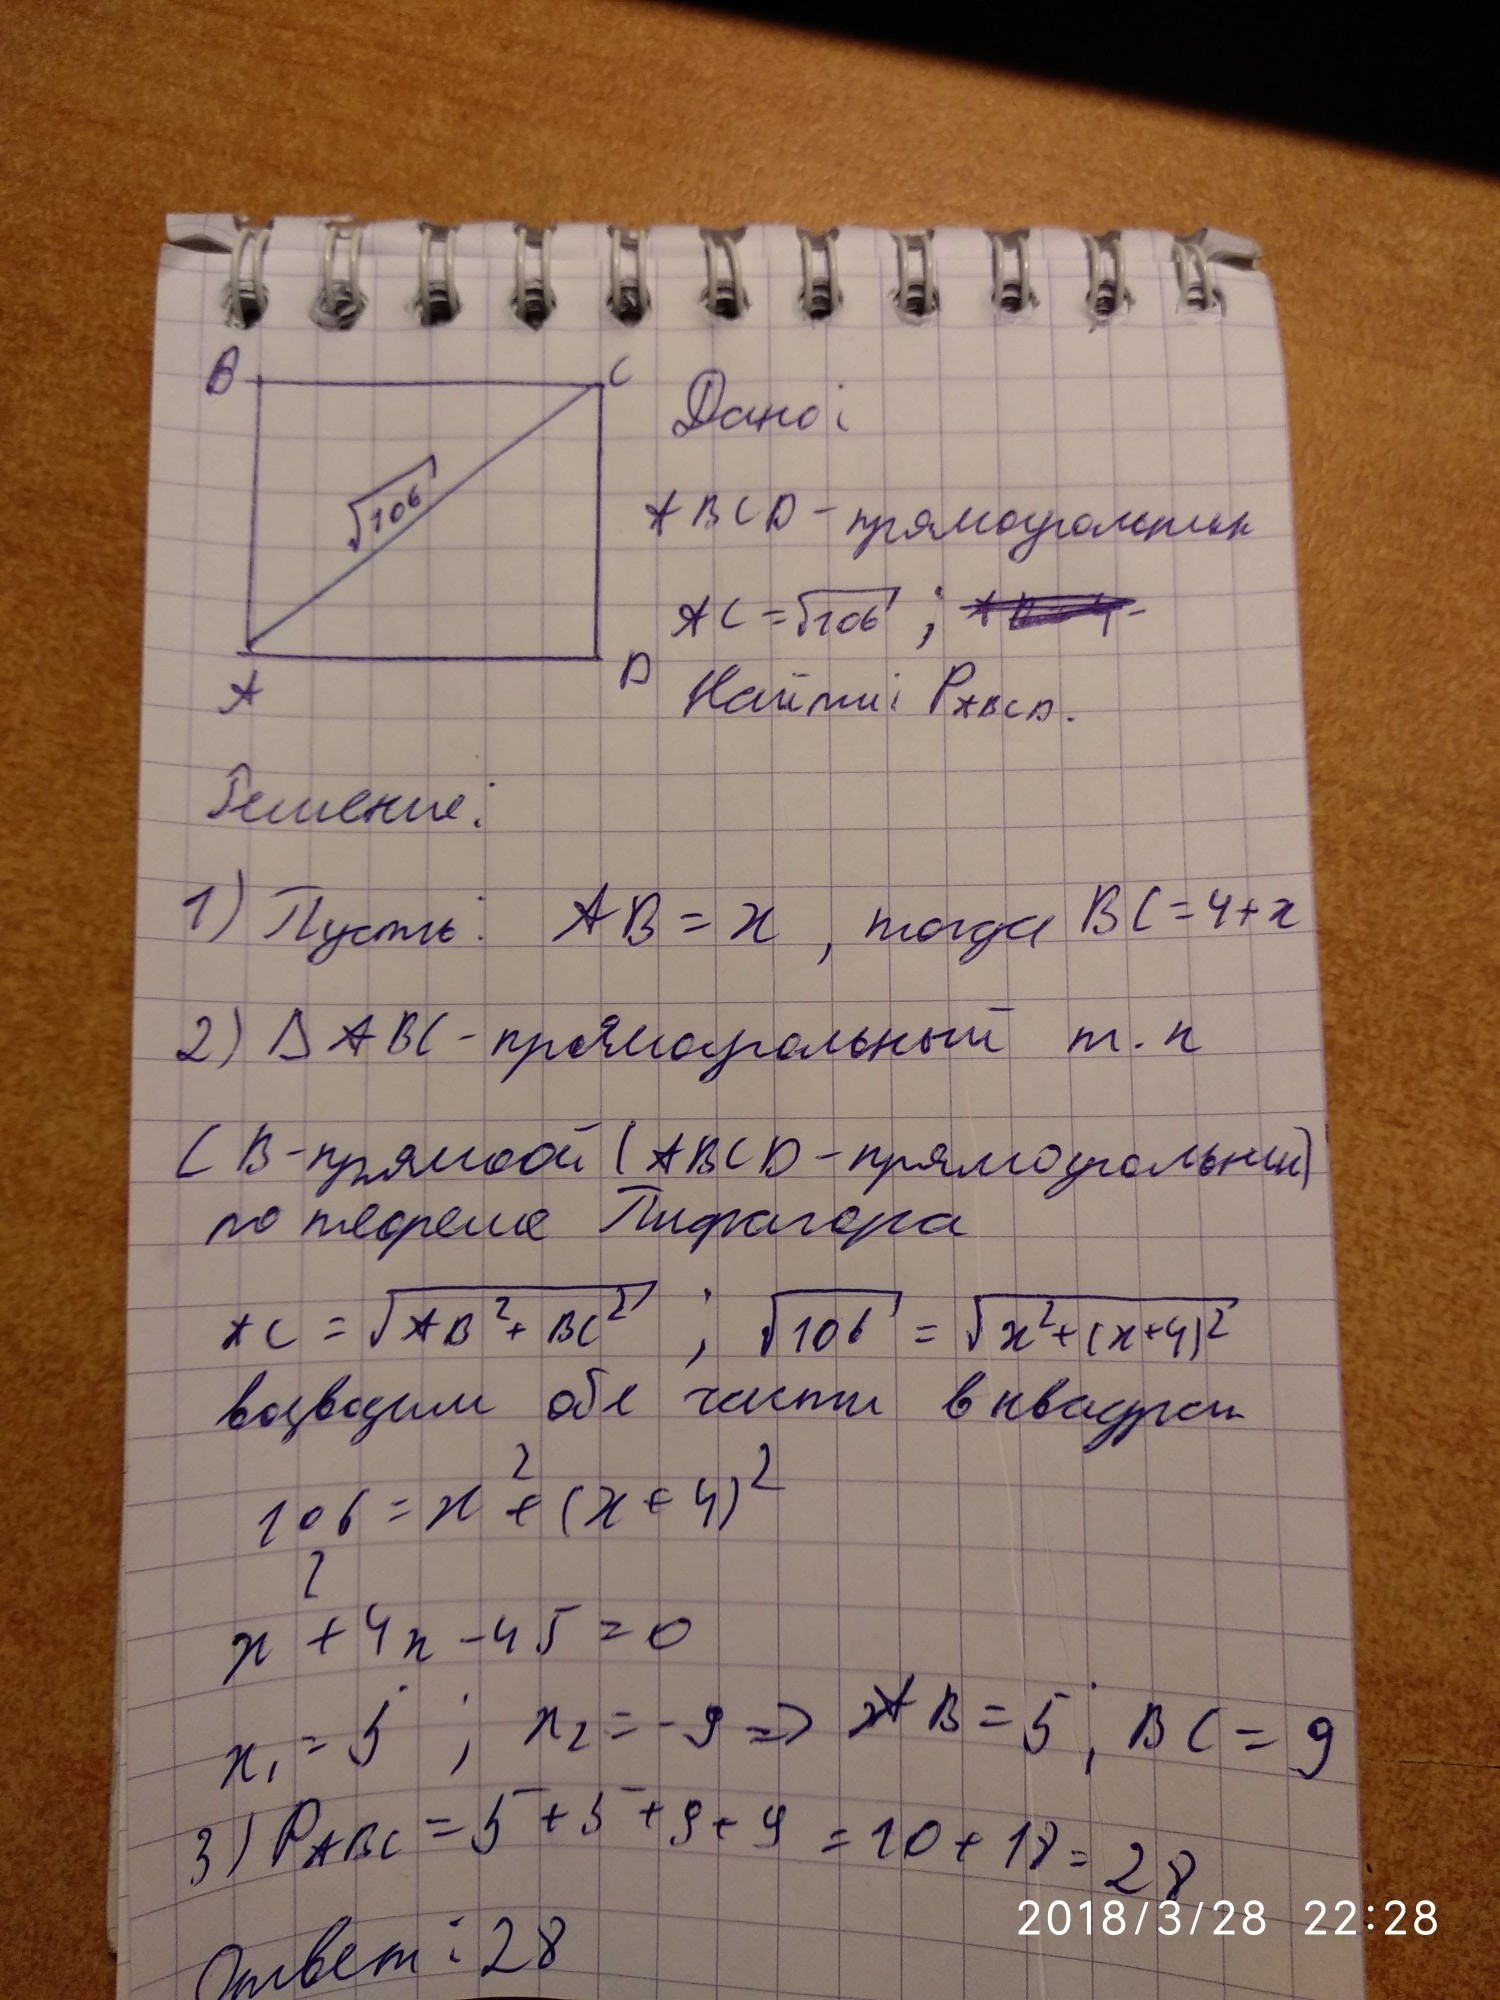 B C
Дано:
√106
ABCD - прямоугольник
AC = √106 ;
A D
Найти: PABCD.
Решение:
1) Пусть: AB = x , тогда BC = 4+x
2) Δ ABC - прямоугольный т. к
∠ B - прямой (ABCD - прямоугольник)
по теореме Пифагора
AC = √AB² + BC² ; √106 = √x²+(x+4)²
возводим обе части в квадрат
106 = x² + (x + 4)²
x² + 4x - 45 = 0
x₁ = 5 ; x₂ = - 9 => AB = 5 ; BC = 9
3) PABC = 5 + 5 + 9 + 9 = 10 + 18 = 28
Ответ: 28
2018/3/28 22:28